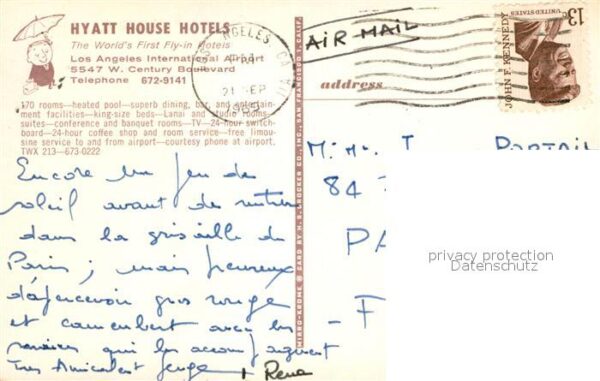 HYATT HOUSE HOTELS
The World's First Fly-in Hotels
Los Angeles International Airport
5547 W. Century Boulevard
Telephone 672-9141
170 rooms—heated pool—superb dining, bar, and entertain-
ment facilities—king-size beds—Lanai and studio rooms
suites—conference and banquet rooms—TV—24-hour switch-
board—24-hour coffee shop and room service—free limou-
sine service to and from airport—courtesy phone at airport.
TWX 213—673-0222
Encore un peu de
soleil avant de rentrer
dans la grisaille de
Paris; mais heureux
d'apercevoir gros rouge
et camembert avec les
qui les accompagnent
Très Amicalement
+ Rene
LOS ANGELES CA
PM
21 SEP
AIR MAIL
address
13c
UNITED STATES
JOHN F. KENNEDY
MIRRO-KROME ® CARD BY H. S. CROCKER CO., INC., SAN FRANCISCO 1, CALIF.
84
PA
F
privacy protection
Datenschutz